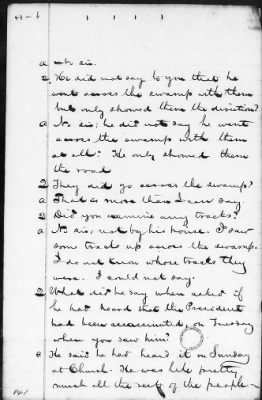 43-6
A No sir.
Q. He did not say to you that he
went across the swamp with them
but only showed them the direction?
A No sir; he did not say he went
across the swamp with them
at all: He only showed them
the road
Q They did go across the swamp?
A That is more than I can say
Q Did you examine any tracks?
A No sir; not by his house. I saw
some tracks up across the swamp.
I do not know whose tracks they
were. I could not say.
Q What did he say when asked if
he had heard that the President
had been assassinated, on Tuesday
when you saw him?
A He said he had heard it on Sunday
at Church. He was like pretty
much all the rest of the people -